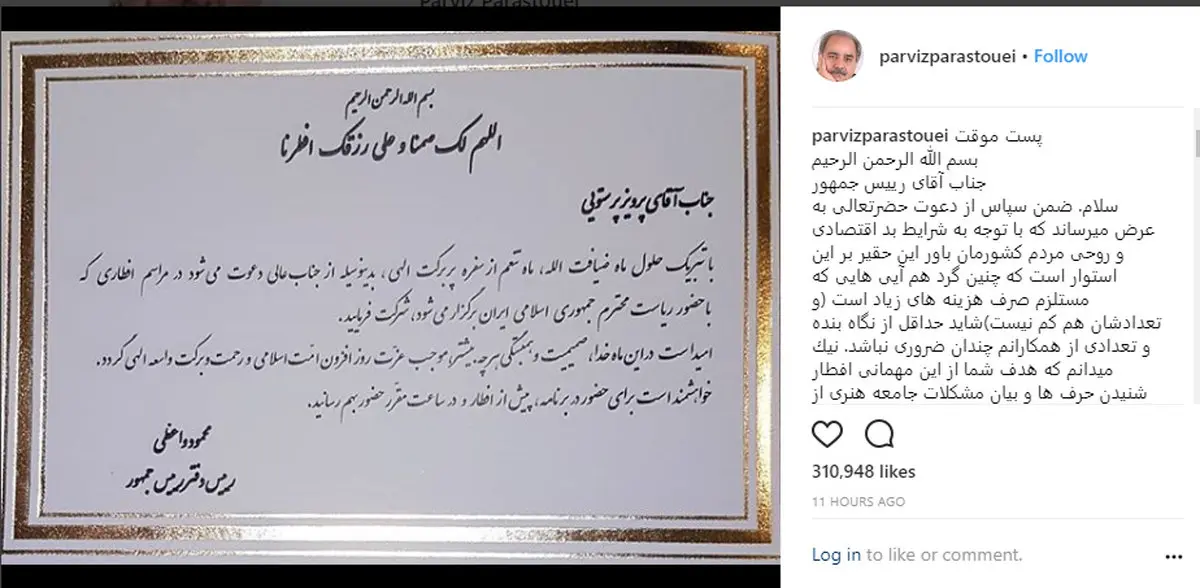 Parviz Parastouei
بسم الله الرحمن الرحیم
اللهم لک صمنا و علی رزقک افطرنا
جناب آقای پرویز پرستویی
با تبریک حلول ماه ضیافت الله، ماه تنعم از سفره پر برکت الهی، بدینوسیله از جناب عالی دعوت می‌شود در مراسم افطاری که
با حضور ریاست محترم جمهوری اسلامی ایران برگزار می‌شود، شرکت فرمایید.
امید است در این ماه خدا، صمیمیت و همبستگی هرچه بیشتر، موجب عزت روز افزون امّت اسلامی و رحمت و برکت واسعه الهی گردد.
خواهشمند است برای حضور در برنامه، پیش از افطار و در ساعت مقرّر حضور بهم رسانید.
محمود واعظی
رییس دفتر رییس جمهور
parvizparastouei • Follow
parvizparastouei پست موقت
بسم الله الرحمن الرحیم
جناب آقای رییس جمهور
سلام. ضمن سپاس از دعوت حضرتعالی به
عرض میرساند که با توجه به شرایط بد اقتصادی
و روحی مردم کشورمان باور این حقیر بر این
استوار است که چنین گرد هم آیی هایی که
مستلزم صرف هزینه های زیاد است (و
تعدادشان هم کم نیست)شاید حداقل از نگاه بنده
و تعدادی از همکارانم چندان ضروری نباشد. نیك
میدانم که هدف شما از این مهمانی افطار
شنیدن حرف ها و بیان مشکلات جامعه هنری از
310,948 likes
11 HOURS AGO
Log in to like or comment.